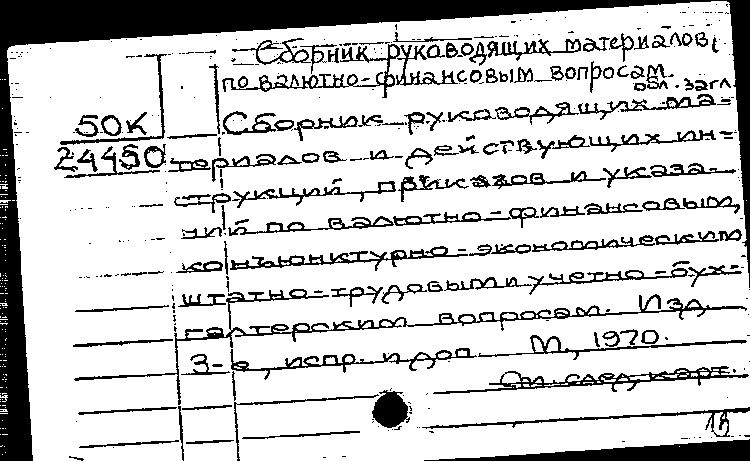 Сборник руководящих материалов
по валютно-финансовым вопросам.
обл. загл.
50К
24450
Сборник руководящих ма-
териалов и действующих ин-
струкций, приказов и указа-
ний по валютно-финансовым,
конъюнктурно-экономическим
штатно-трудовым и учетно-бух-
галтерским вопросам. Изд.
3-е, испр. и доп. М., 1970.
См. след. карт.